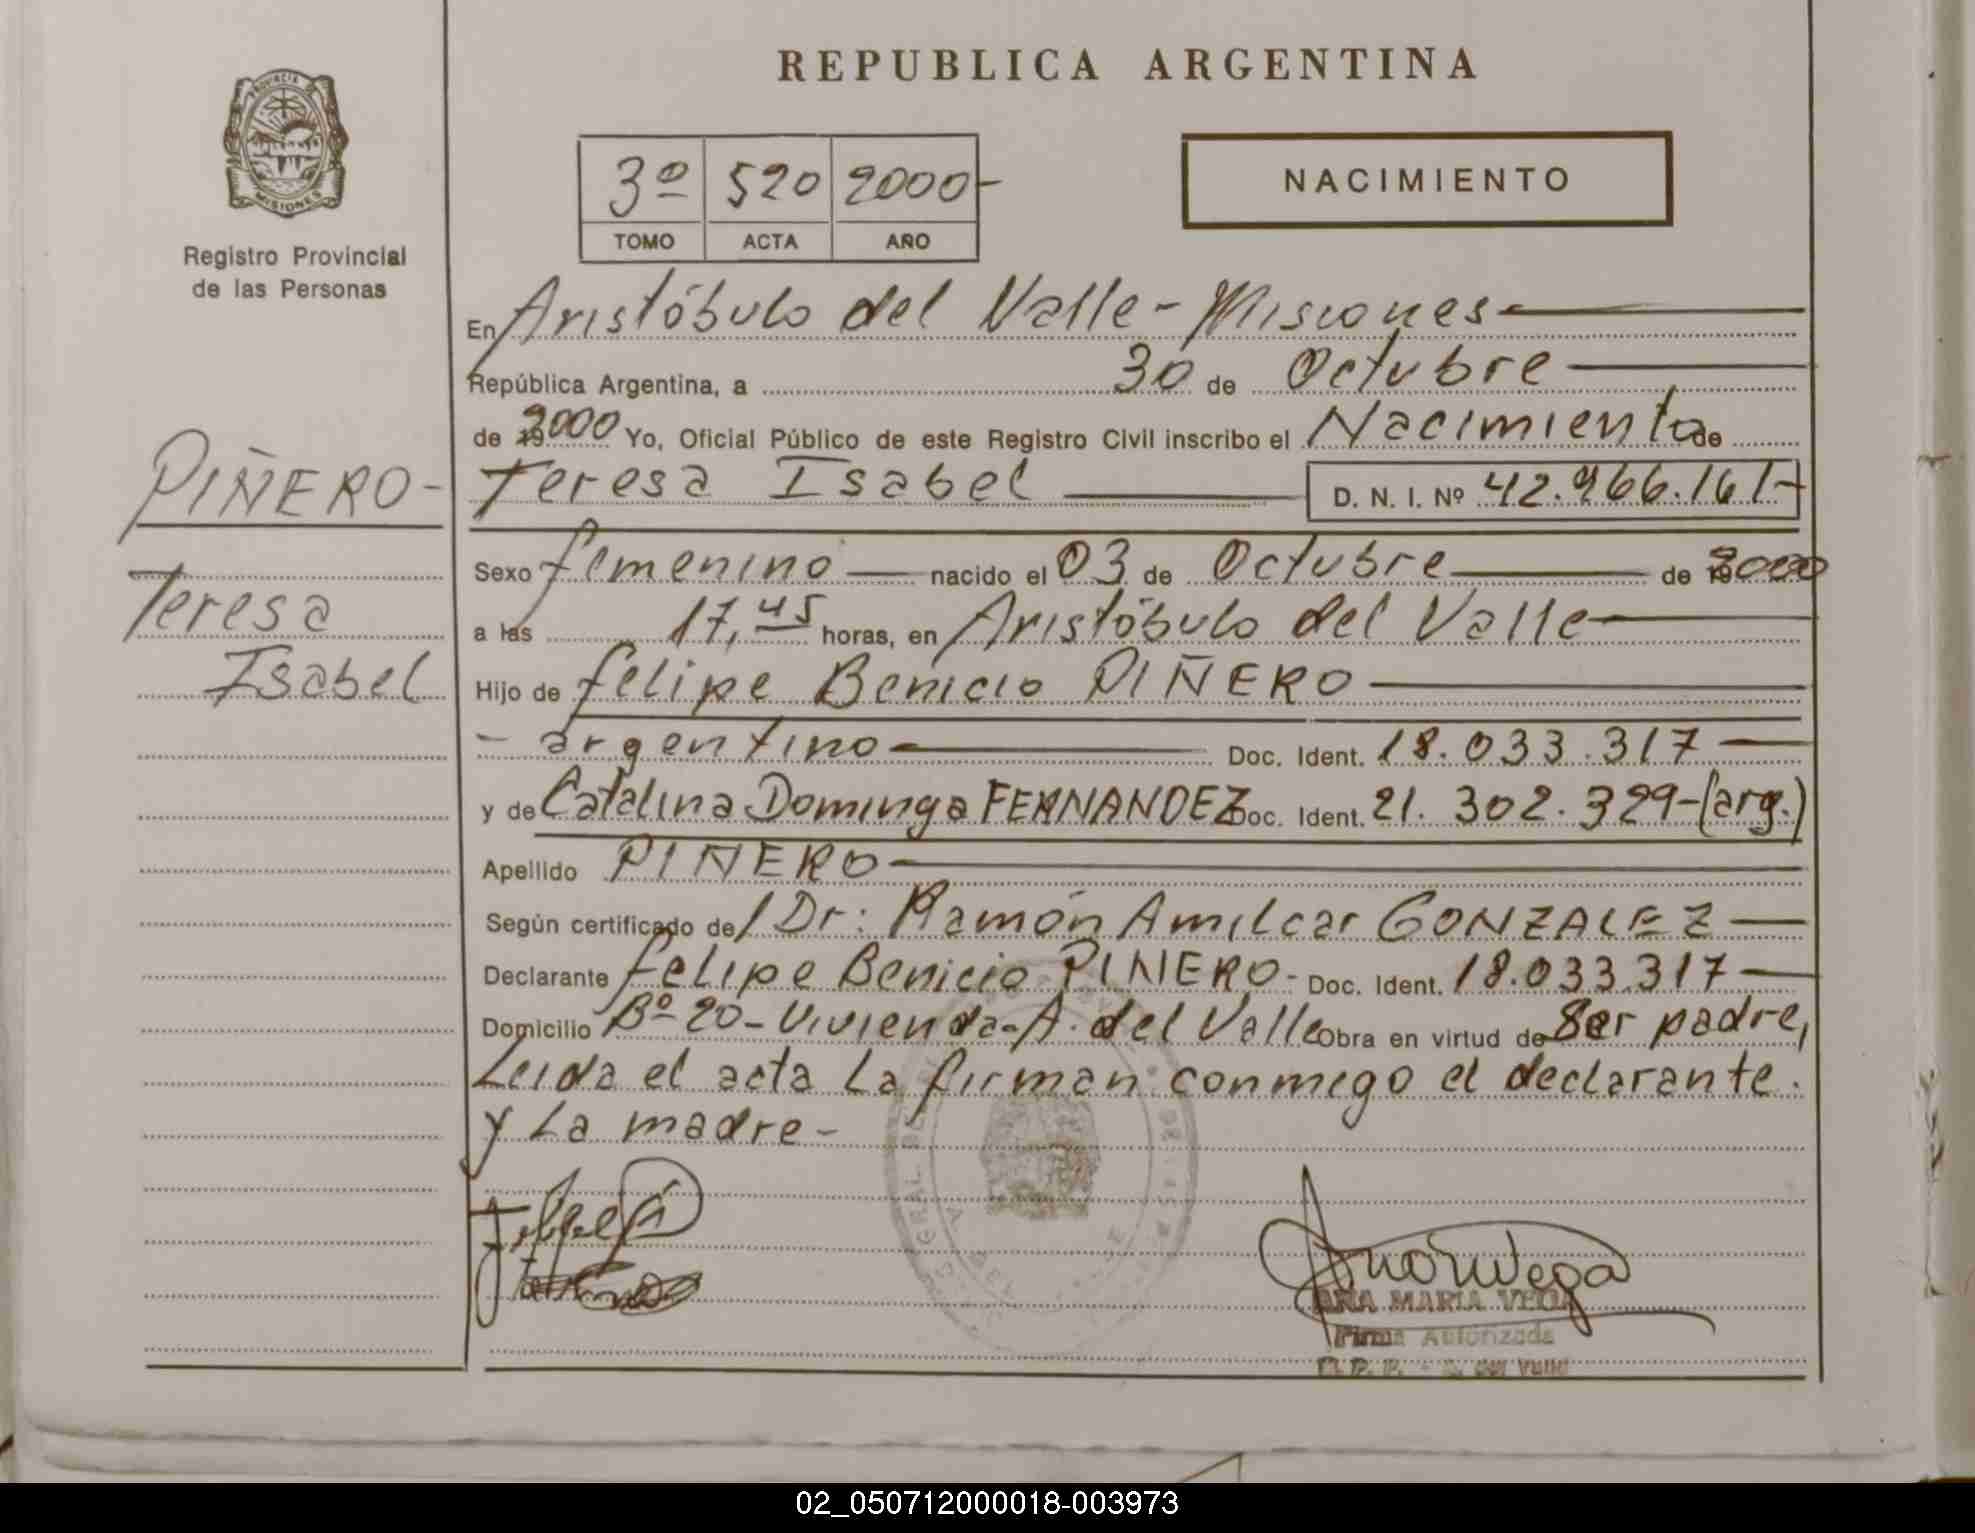 REPUBLICA ARGENTINA
PROVINCIA DE
MISIONES
Registro Provincial
de las Personas
3º 520 2000-
TOMO ACTA AÑO
NACIMIENTO
En Aristóbulo del Valle - Misiones
República Argentina, a 30 de Octubre
de 2000 Yo, Oficial Público de este Registro Civil inscribo el Nacimiento de
PIÑERO-
Teresa Isabel D. N. I. Nº 42.966.161-
Teresa
Isabel
Sexo femenino nacido el 03 de Octubre de 2000
a las 17,45 horas, en Aristóbulo del Valle
Hijo de Felipe Benicio PIÑERO
- argentino Doc. Ident. 18.033.317
y de Catalina Dominga FERNANDEZ Doc. Ident. 21.302.329-(arg.)
Apellido PIÑERO
Según certificado de/ Dr: Ramón Amilcar GONZALEZ
Declarante Felipe Benicio PIÑERO- Doc. Ident. 18.033.317
Domicilio Bº 20-Vivienda-A. del Valle Obra en virtud de Ser padre,
Leida el acta La firman conmigo el declarante
y La madre-
ANA MARIA VEGA
Firma Autorizada
R. P. P. - A. del Valle
02_050712000018-003973